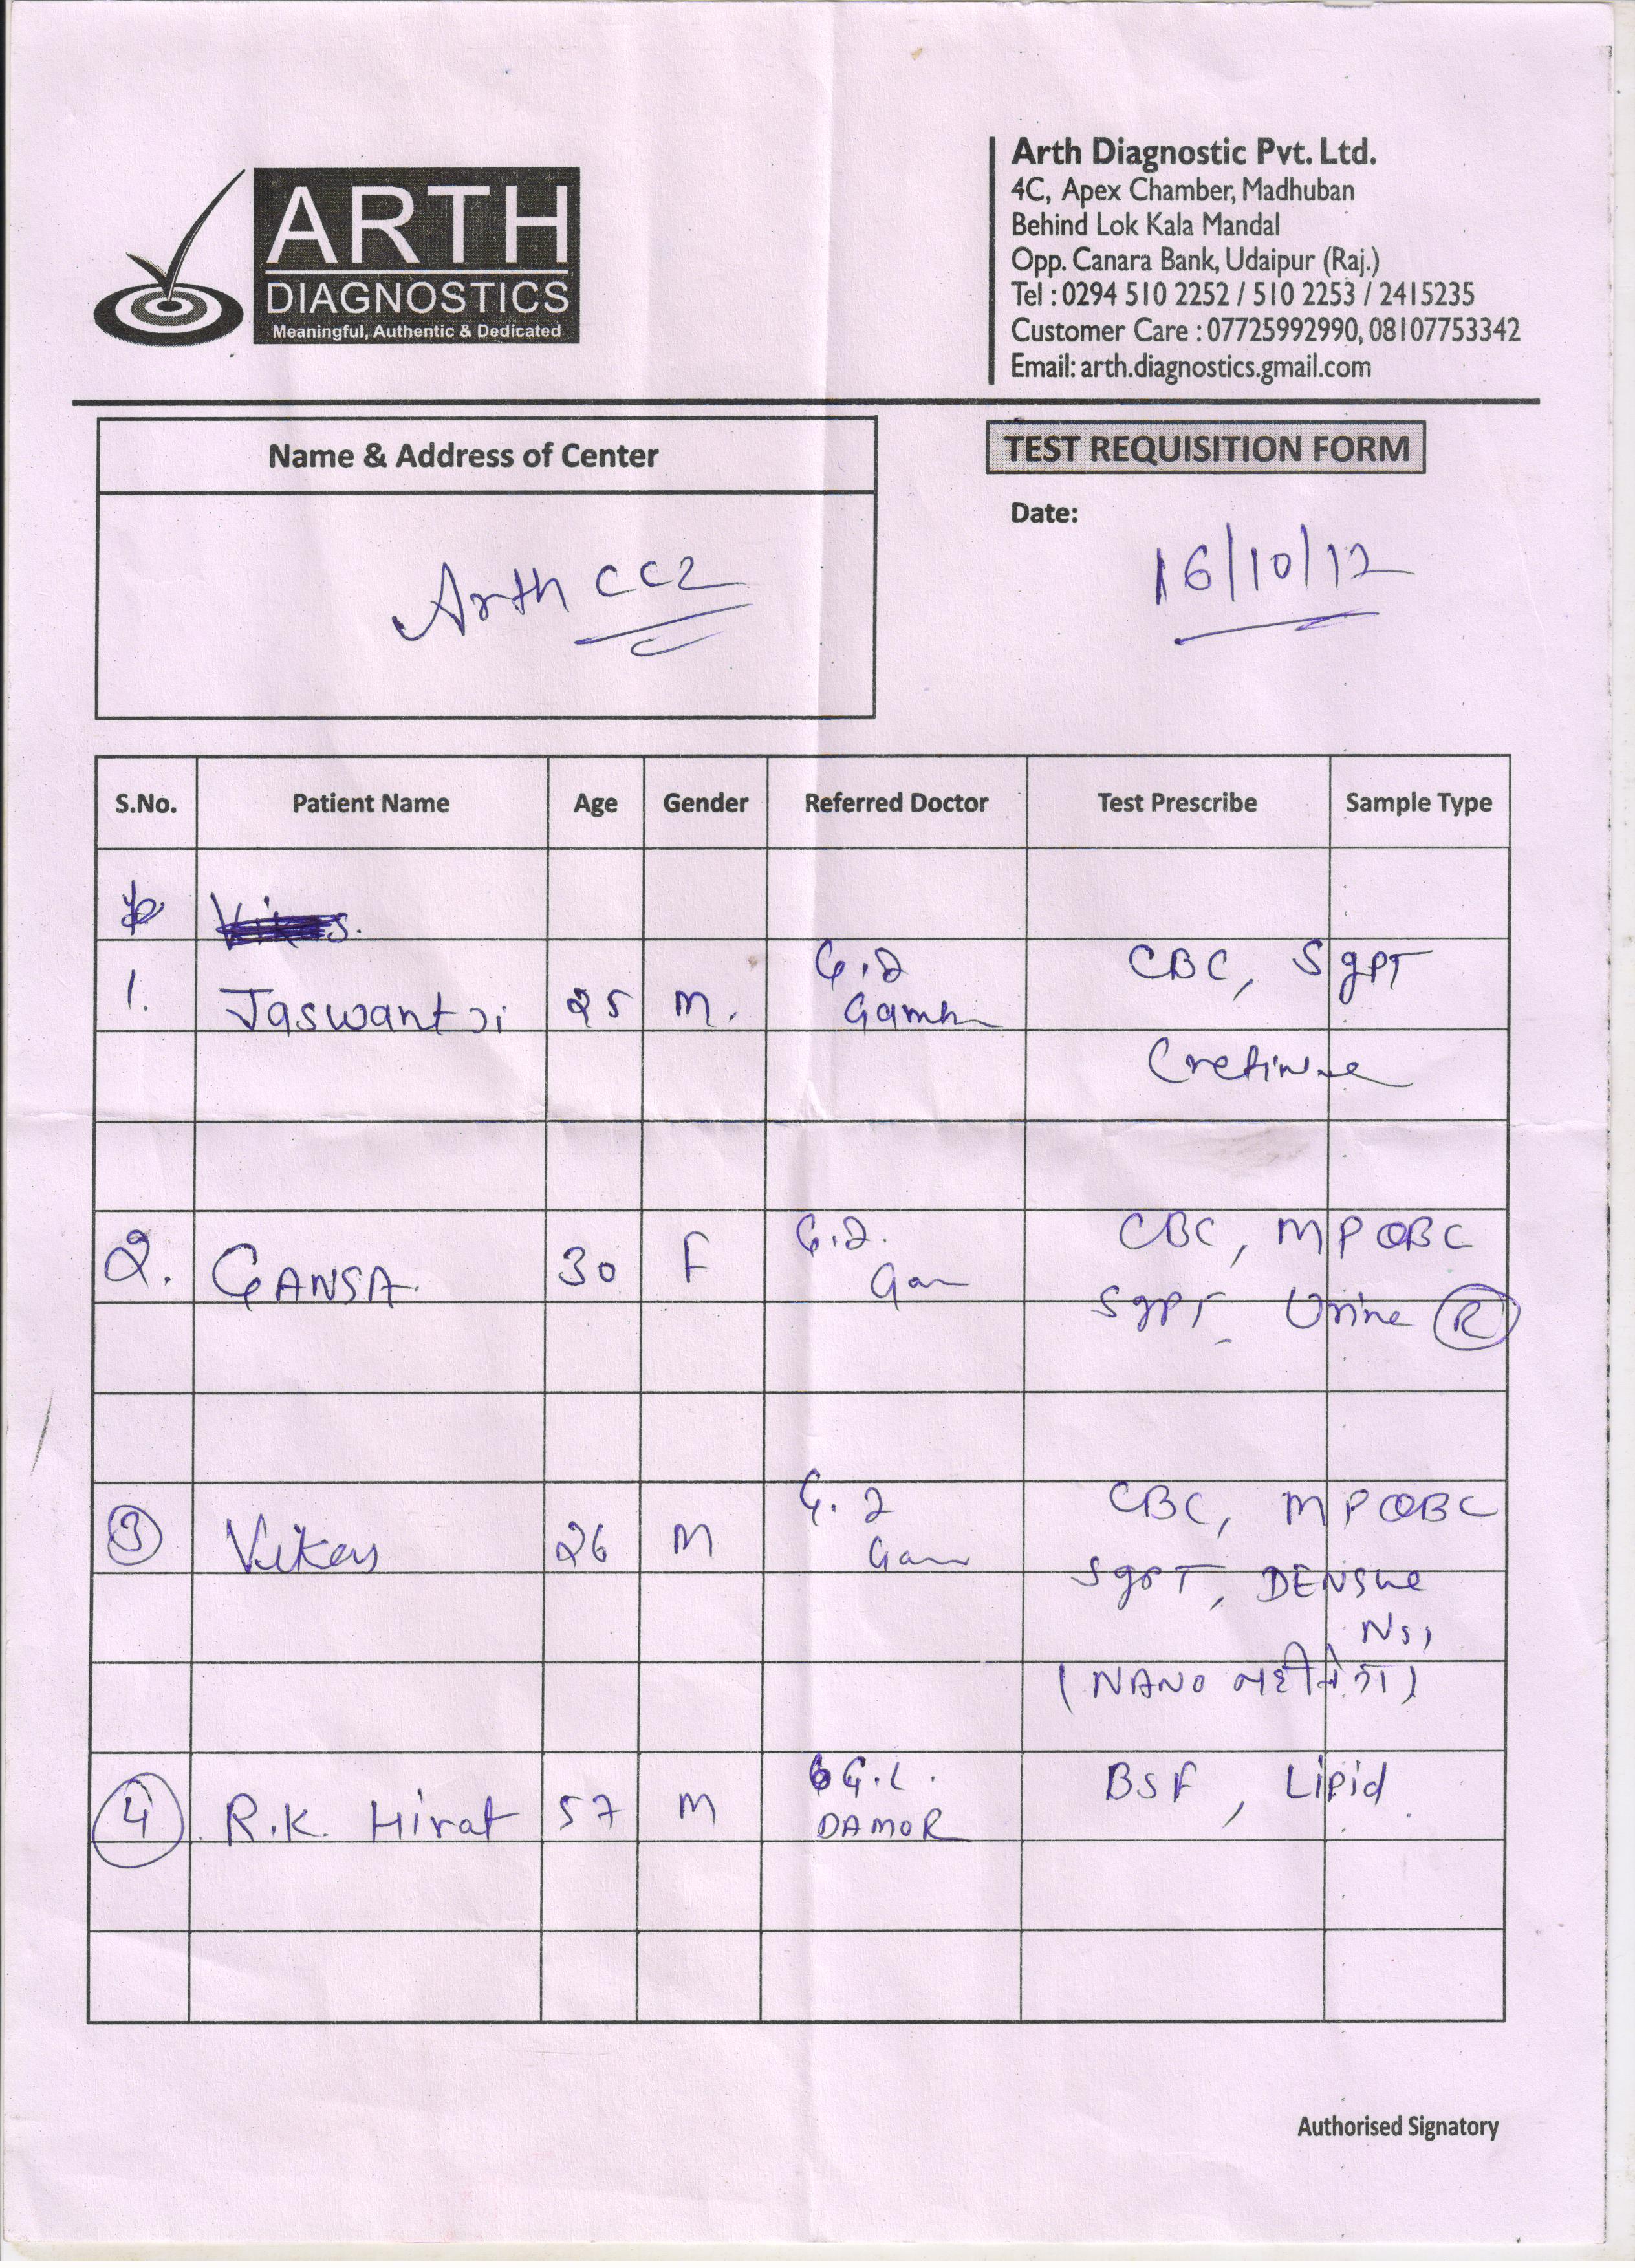 ARTH
DIAGNOSTICS
Meaningful, Authentic & Dedicated
Arth Diagnostic Pvt. Ltd.
4C, Apex Chamber, Madhuban
Behind Lok Kala Mandal
Opp. Canara Bank, Udaipur (Raj.)
Tel : 0294 510 2252 / 510 2253 / 2415235
Customer Care : 07725992990, 08107753342
Email: arth.diagnostics.gmail.com
Name & Address of Center
Arth CC2
TEST REQUISITION FORM
Date:
16/10/12
S.No. Patient Name Age Gender Referred Doctor Test Prescribe Sample Type
1. Jaswant 25 M. CBC, SgPT
2. GANSA 30 F CBC, MP QBC
SgPT, Urine R
3 Vikas 26 M CBC, MP QBC
SgPT,
NS1
(NANO नही
4 R.K. Hirat 57 M G.L. BSF, Lipid
DAMOR
Authorised Signatory